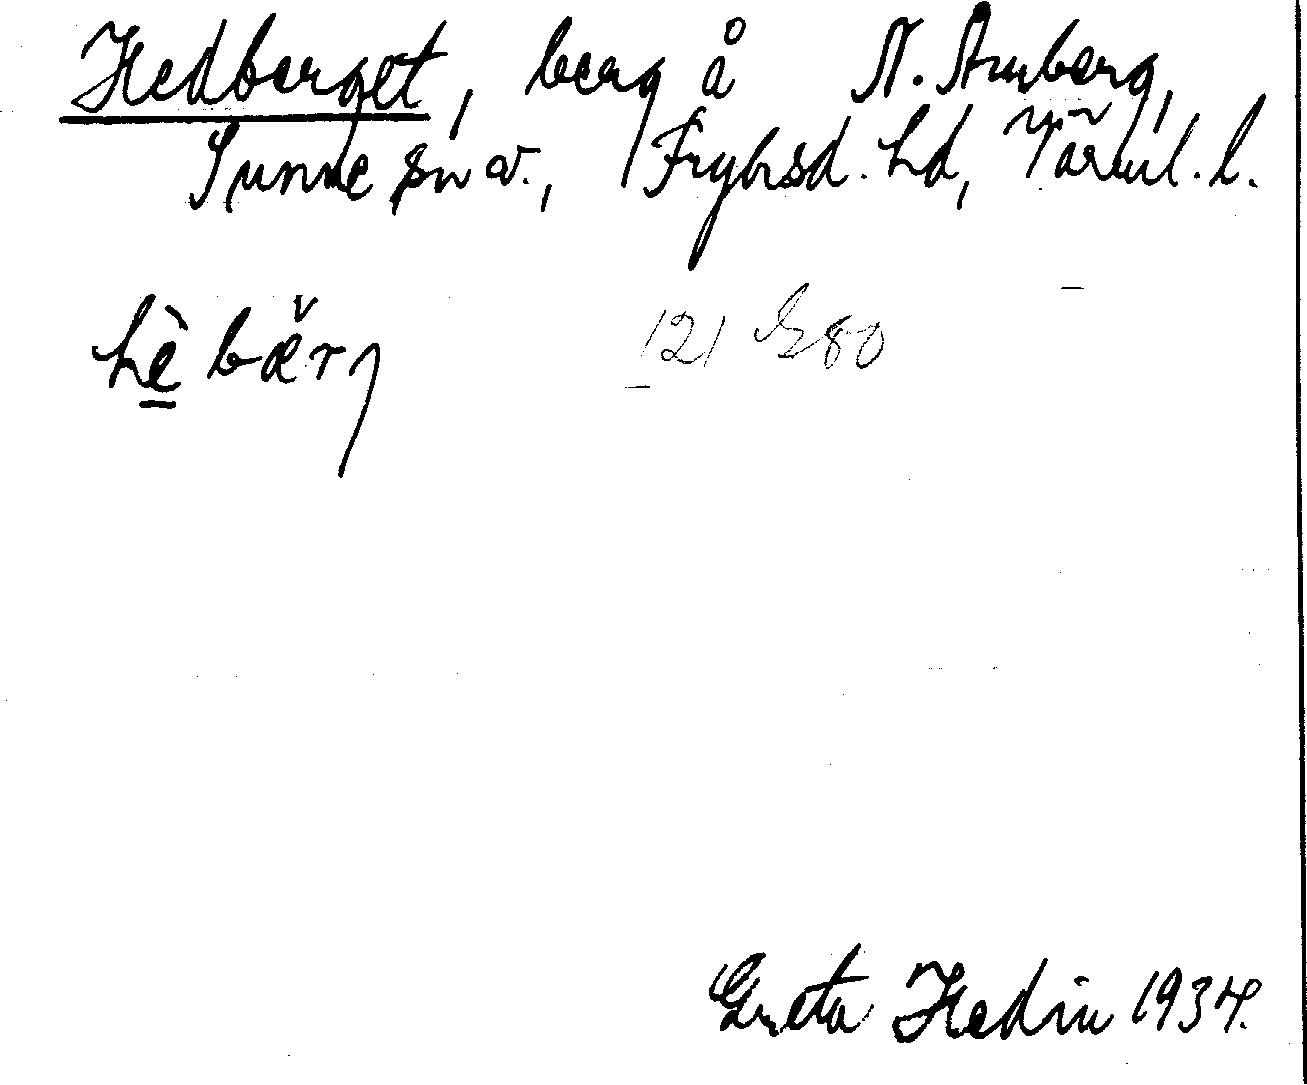 Hedberget, berg å N. Amberg,
Sunne sn v., Fryksd. hd, Värml. l.
hè bær
121 G80
Greta Hedin 1934.